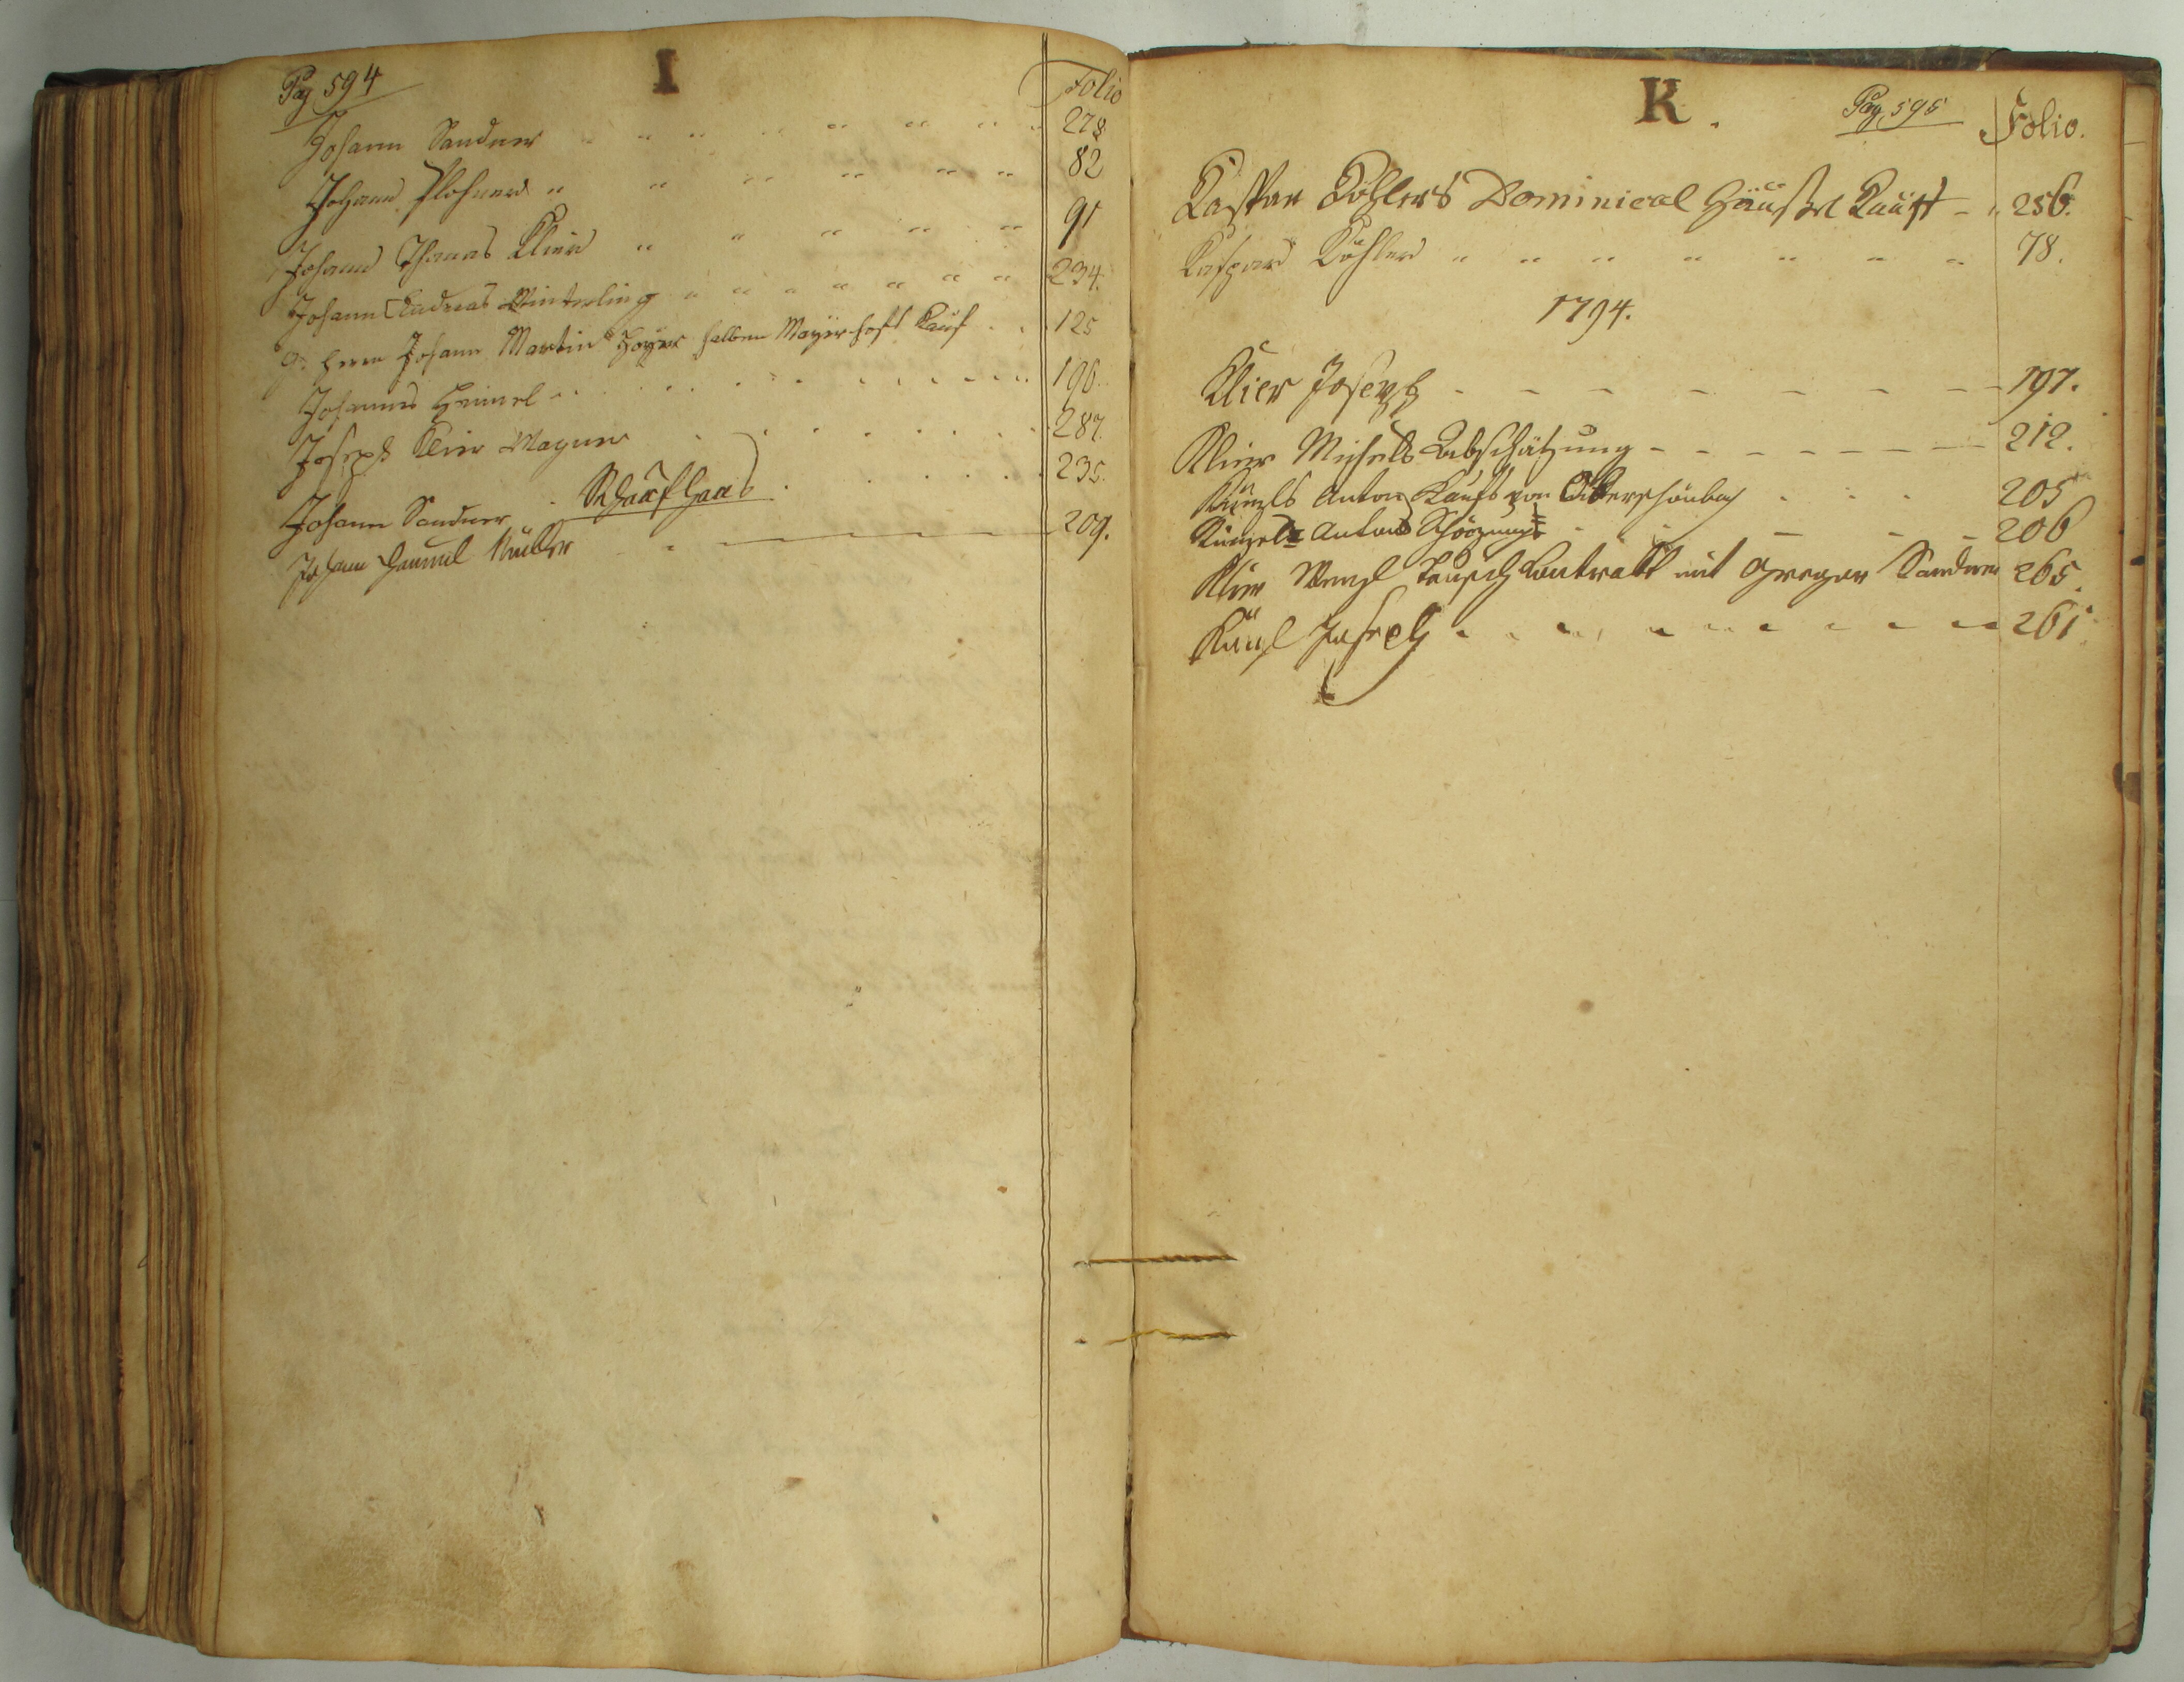 Pag 594
I
Folio
Johann Sandner 278
Johann Plohner 82
Johann Thomas Klier 91
Johann Andreas Winterling 234.
Herrn Johann Martin Hoyer halben Mayerhofs Kauf 125
Johannes Heinel 196.
Joseph Klier Wagner 287.
Johann Sandner Schaafhaus 235.
Johann Samuel Müller 209.
K.
Pag 595
Folio.
Kaspar Köhlers Dominical Häußel Kauff 256.
Kaspar Köhler 78.
1794.
Klier Joseph 197.
Klier Michels Abschätzung 212.
Künzls Anton Kaufs von Oberschönbach 205
Künzels Antons 206
Klier Wenzl Tausch Contrakt mit Gregor Sandner 265.
Künzl Joseph 261.